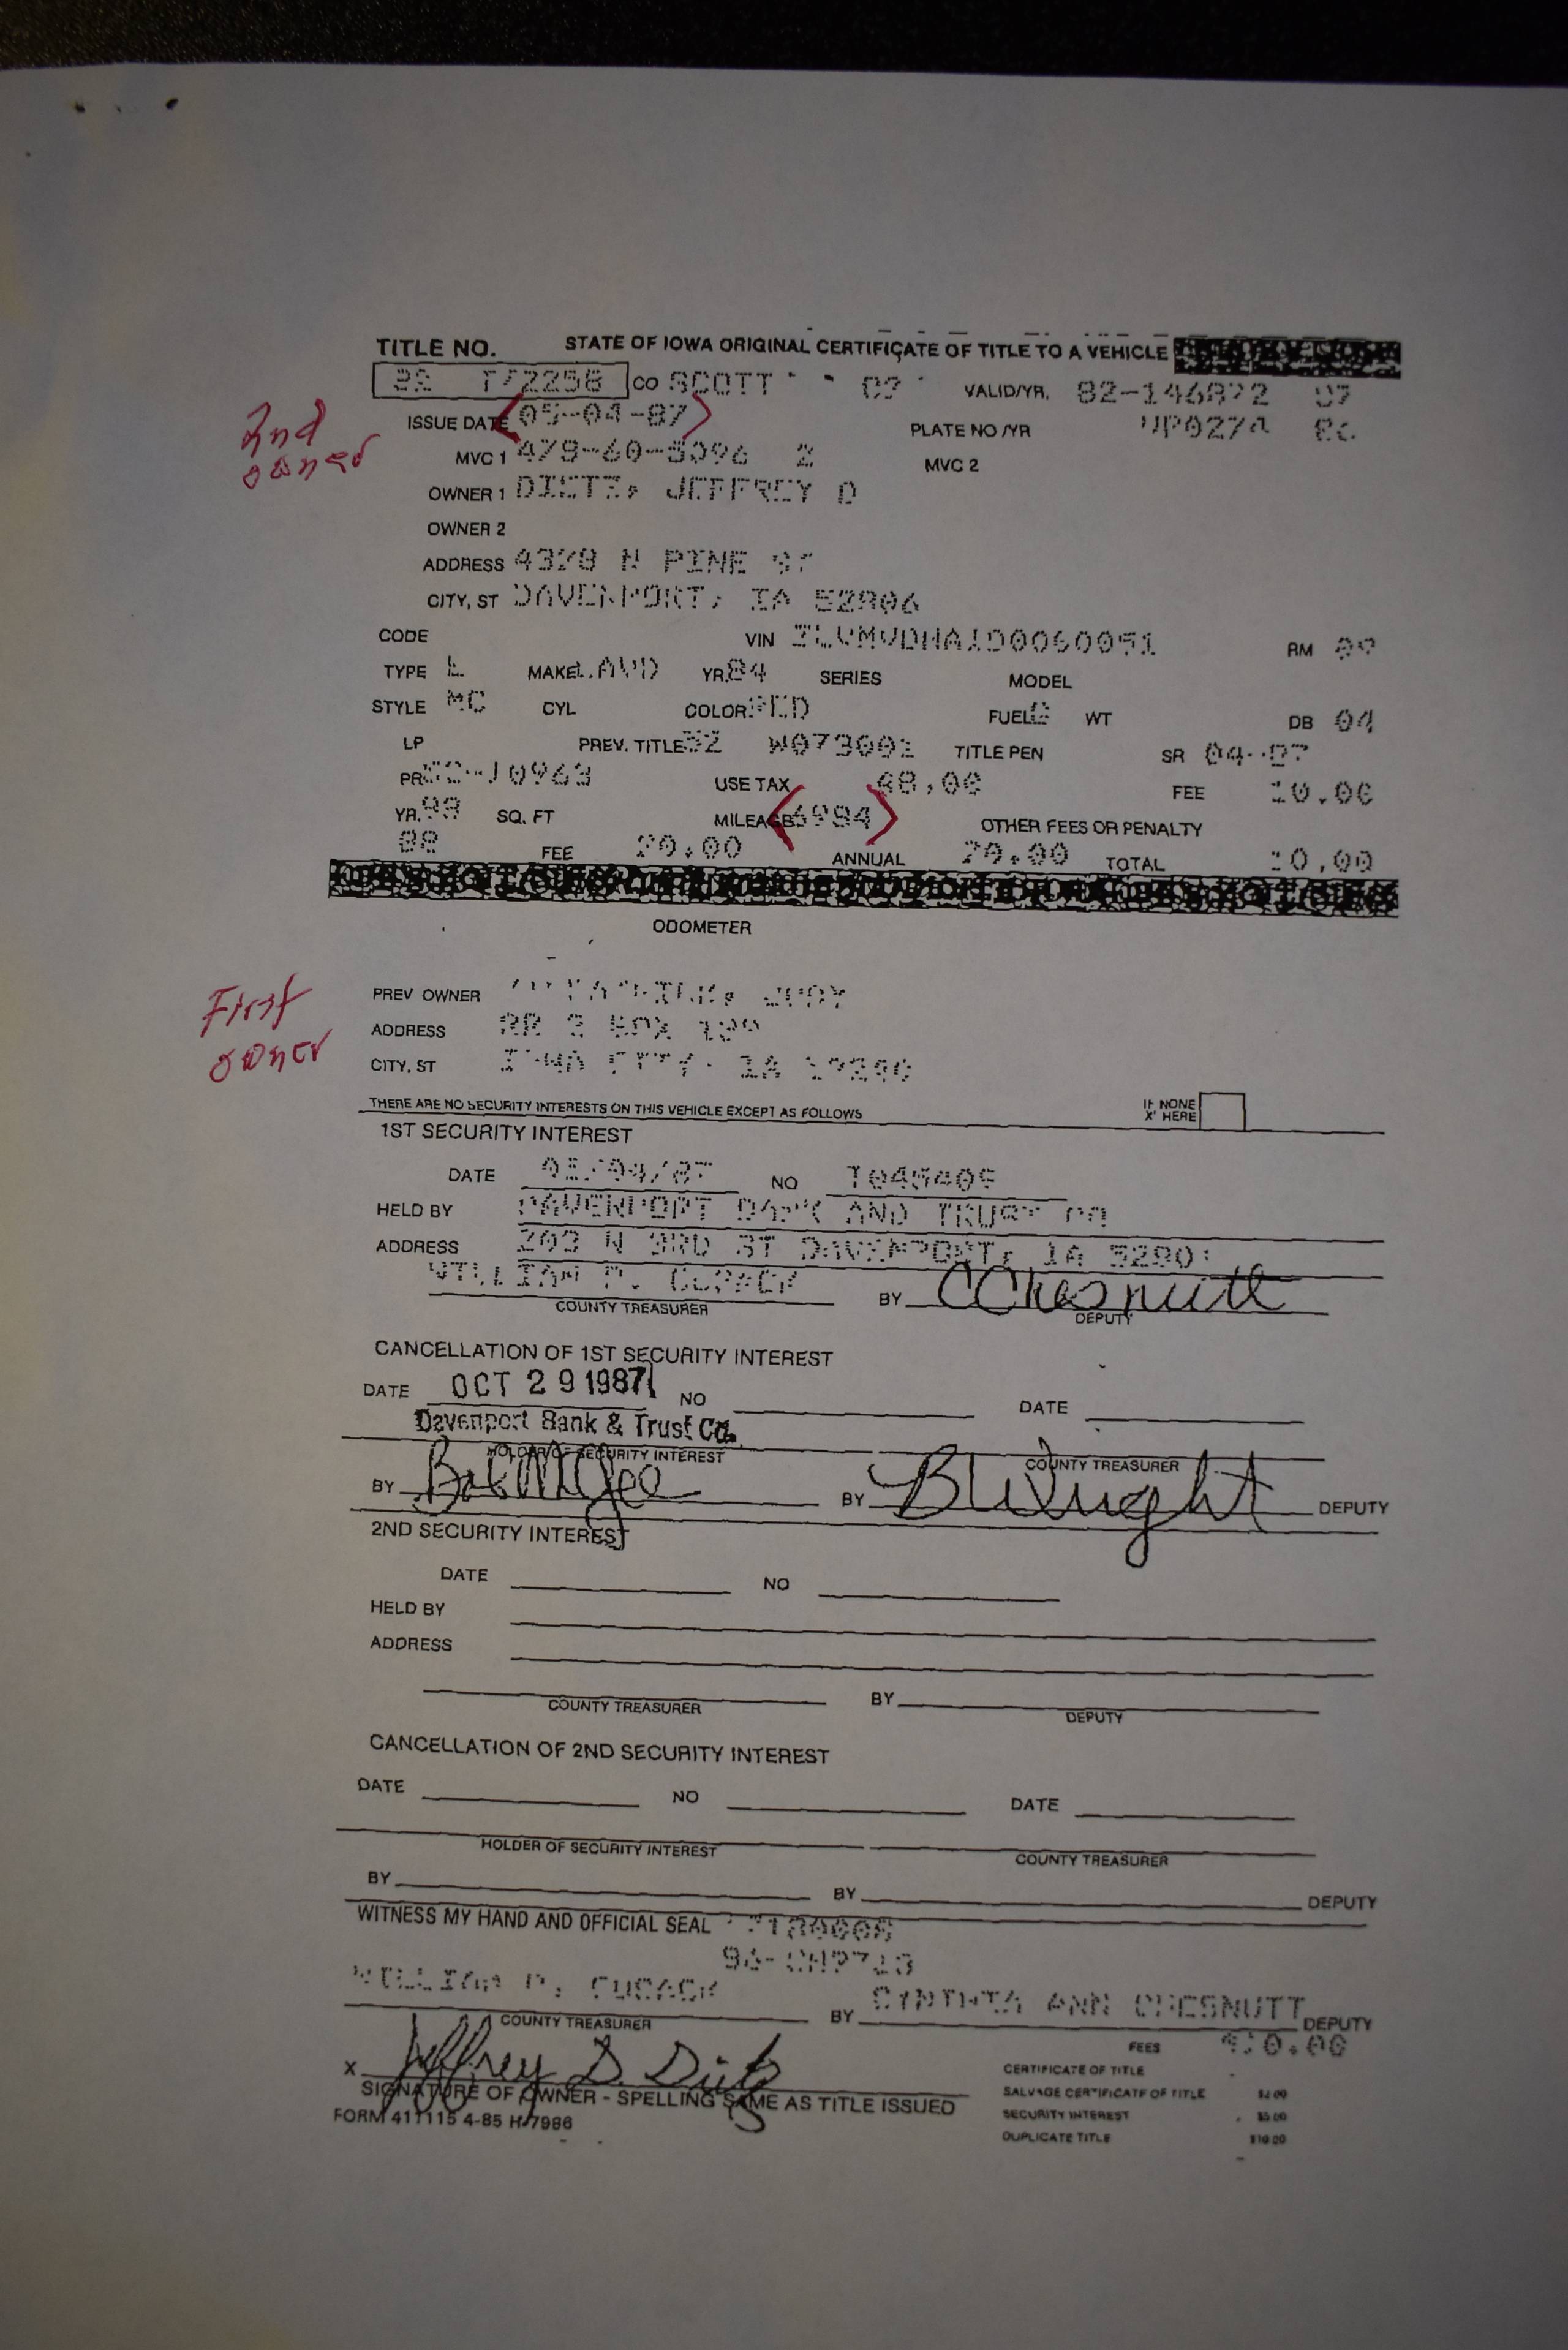 TITLE NO. STATE OF IOWA ORIGINAL CERTIFICATE OF TITLE TO A VEHICLE
CO SCOTT VALID/YR. 82-146872 87
2nd owner
ISSUE DATE <05-04-87> PLATE NO /YR
MVC 1 2 MVC 2
OWNER 1 DIETZ, JEFFREY D
OWNER 2
ADDRESS N PINE ST
CITY, ST DAVENPORT, IA 52806
CODE VIN RM
TYPE L MAKE LAVD YR. 84 SERIES MODEL
STYLE MC CYL COLOR RED FUEL G WT DB 04
LP PREV. TITLE 52 W073001 TITLE PEN SR 04-87
PR USE TAX 48.00 FEE 10.00
YR. 88 SQ. FT MILEAGE <6984> OTHER FEES OR PENALTY
88 FEE 20.00 ANNUAL 20.00 TOTAL 10.00
ODOMETER
First owner
PREV OWNER
ADDRESS RR 2 BOX
CITY, ST IOWA CITY, IA
THERE ARE NO SECURITY INTERESTS ON THIS VEHICLE EXCEPT AS FOLLOWS IF NONE X' HERE
1ST SECURITY INTEREST
DATE NO
HELD BY DAVENPORT BANK AND TRUST CO
ADDRESS 203 W 3RD ST DAVENPORT, IA 52801
WILLIAM P. CUSACK BY CChesnutt
COUNTY TREASURER DEPUTY
CANCELLATION OF 1ST SECURITY INTEREST
DATE OCT 29 1987 NO DATE
Davenport Bank & Trust Co.
HOLDER OF SECURITY INTEREST COUNTY TREASURER
BY BY B Wright DEPUTY
2ND SECURITY INTEREST
DATE NO
HELD BY
ADDRESS
BY
COUNTY TREASURER DEPUTY
CANCELLATION OF 2ND SECURITY INTEREST
DATE NO DATE
HOLDER OF SECURITY INTEREST COUNTY TREASURER
BY BY DEPUTY
WITNESS MY HAND AND OFFICIAL SEAL
WILLIAM P. CUSACK BY CYNTHIA ANN CHESNUTT DEPUTY
COUNTY TREASURER
FEES $10.00
X Jeffrey D. Dietz
SIGNATURE OF OWNER - SPELLING SAME AS TITLE ISSUED
FORM 411115 4-85 H-7986
CERTIFICATE OF TITLE
SALVAGE CERTIFICATE OF TITLE $2.00
SECURITY INTEREST $5.00
DUPLICATE TITLE $10.00